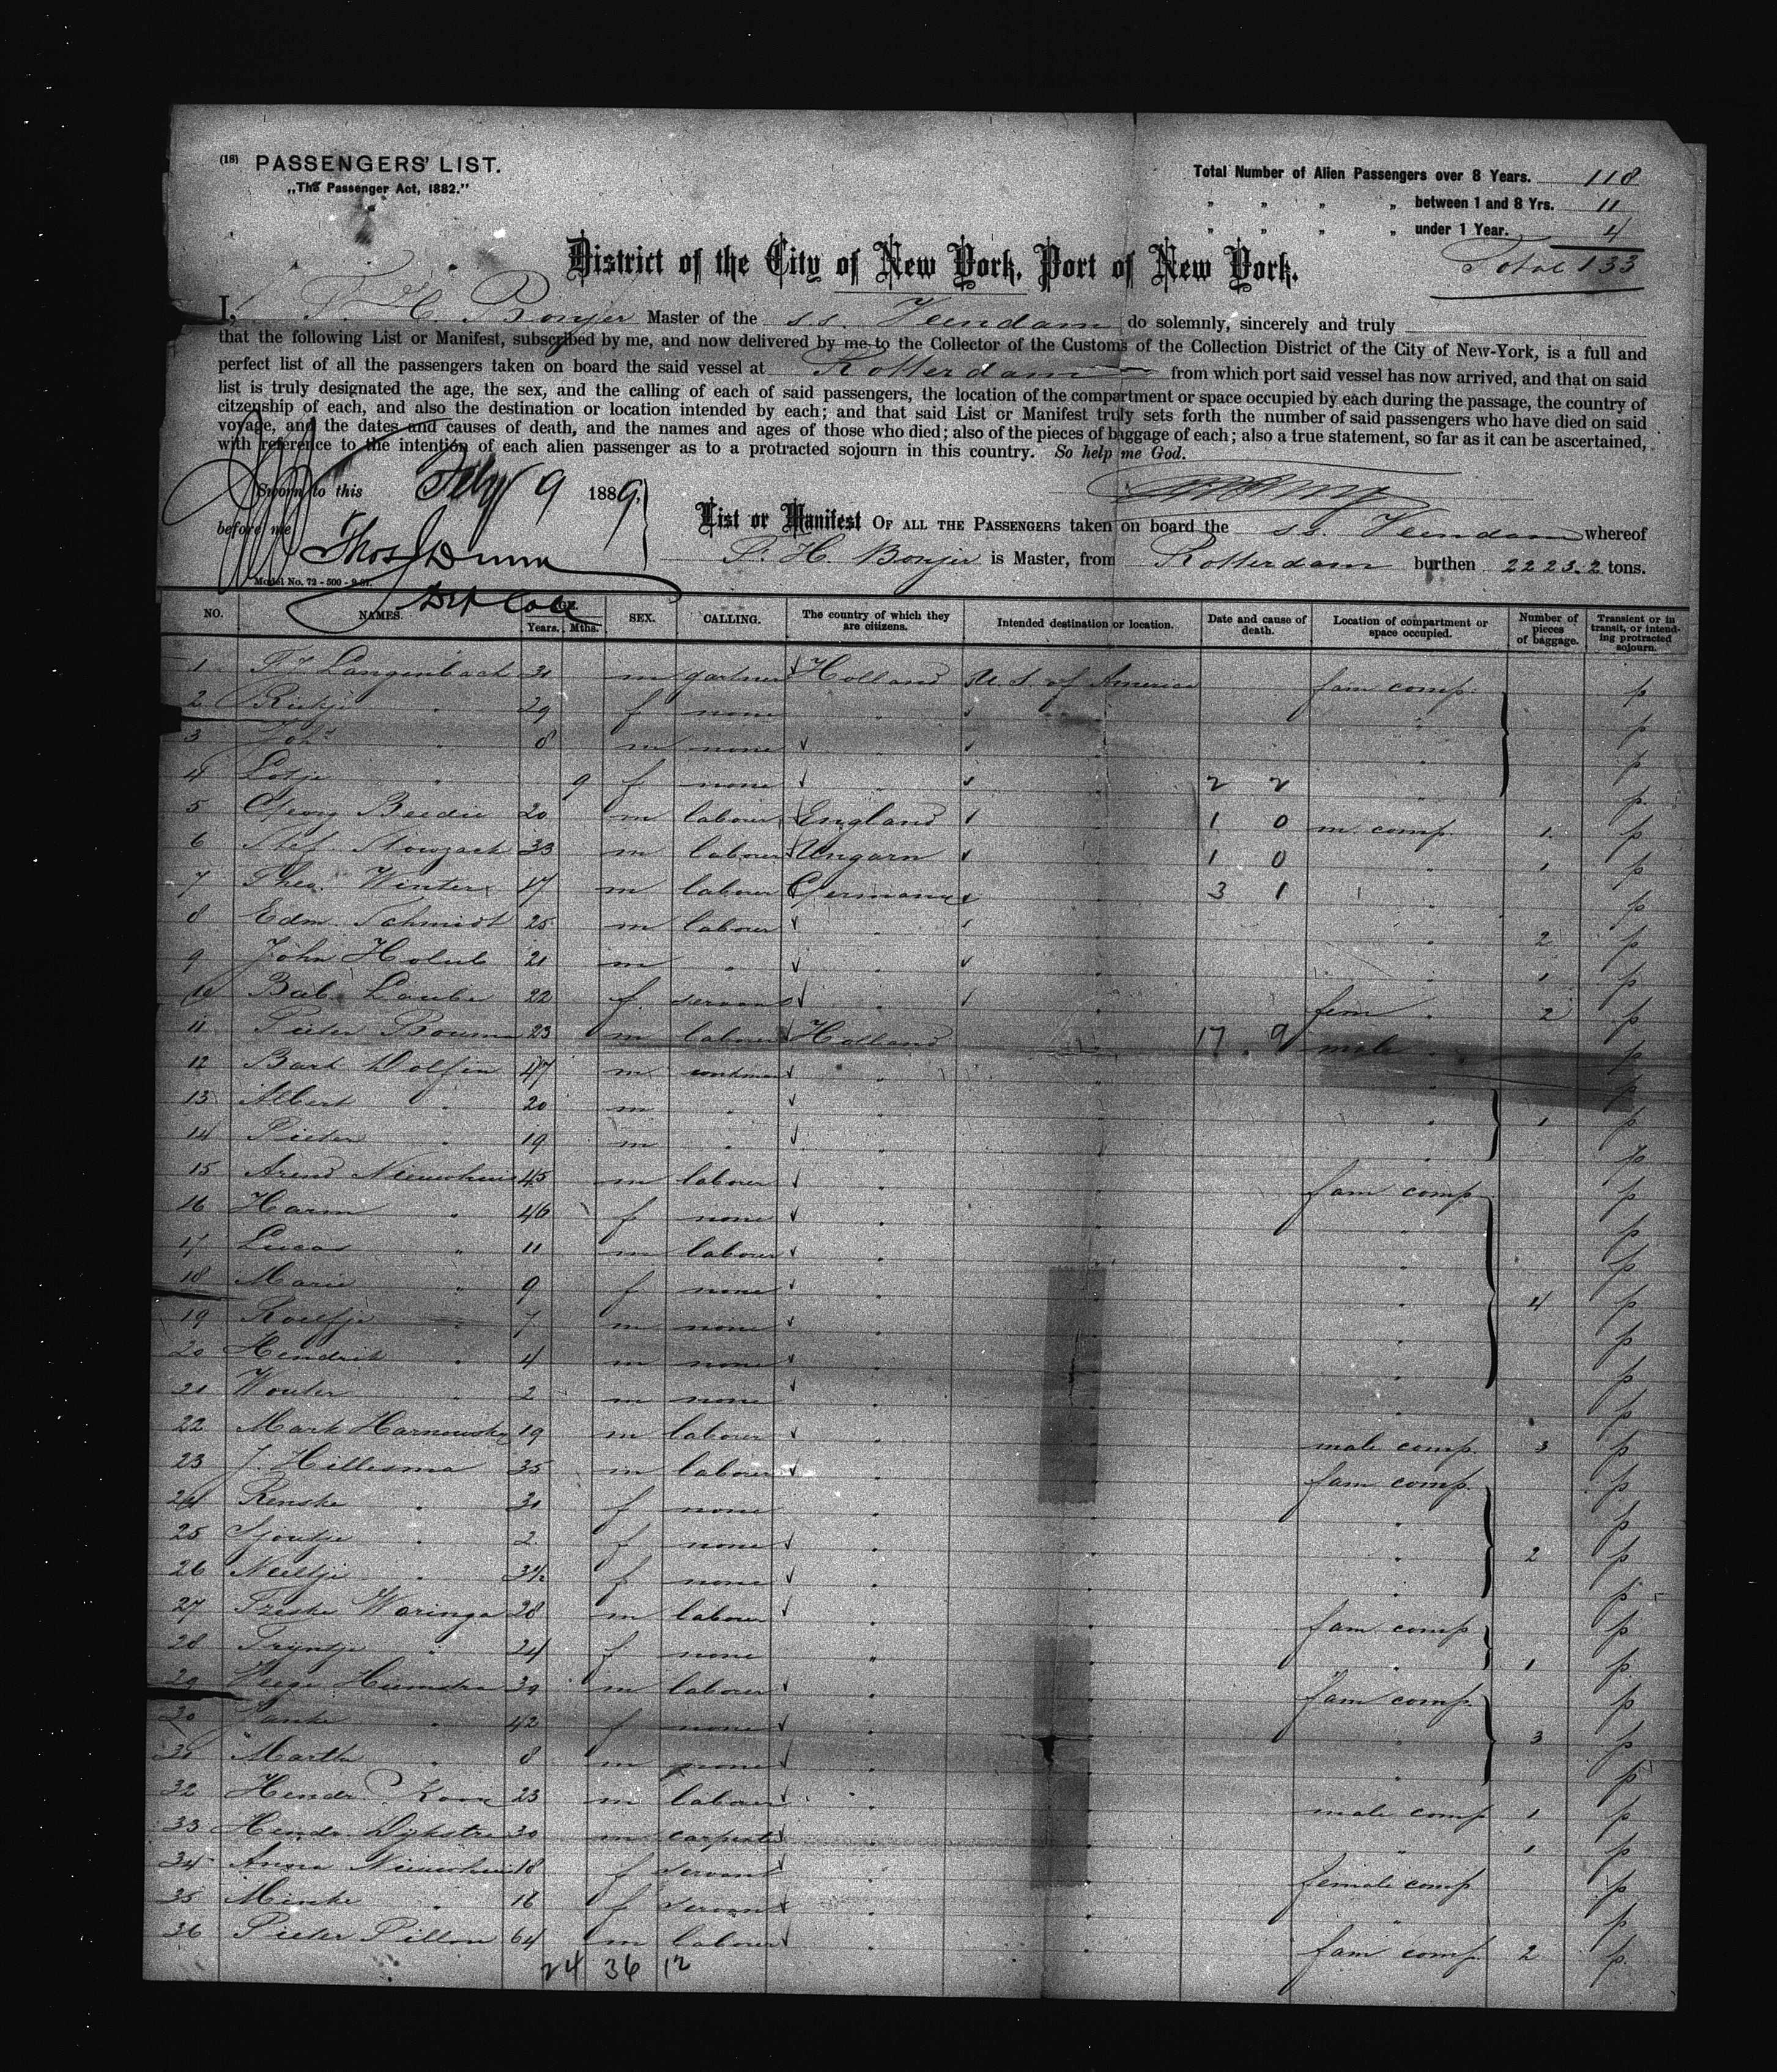 (18) PASSENGERS' LIST.
„The Passenger Act, 1882."
Total Number of Alien Passengers over 8 Years. 118
„ „ „ „ between 1 and 8 Yrs. 11
„ „ „ „ under 1 Year. 4
Total 133
District of the City of New York, Port of New York.
I, P. H. Bonjer Master of the s.s. Veendam do solemnly, sincerely and truly
that the following List or Manifest, subscribed by me, and now delivered by me to the Collector of the Customs of the Collection District of the City of New-York, is a full and
perfect list of all the passengers taken on board the said vessel at Rotterdam from which port said vessel has now arrived, and that on said
list is truly designated the age, the sex, and the calling of each of said passengers, the location of the compartment or space occupied by each during the passage, the country of
citzenship of each, and also the destination or location intended by each; and that said List or Manifest truly sets forth the number of said passengers who have died on said
voyage, and the dates and causes of death, and the names and ages of those who died; also of the pieces of baggage of each; also a true statement, so far as it can be ascertained,
with reference to the intention of each alien passenger as to a protracted sojourn in this country. So help me God.
Sworn to this Feby 9 1889,
before me
Thos J Dunn
Model No. 72 - 500 - 9-87.
Dep Col
List or Manifest OF ALL THE PASSENGERS taken on board the s.s. Veendam whereof
P. H. Bonjer is Master, from Rotterdam burthen 2223.2 tons.
NO. NAMES. AGE. Years. Mths. SEX. CALLING. The country of which they are citizens. Intended destination or location. Date and cause of death. Location of compartment or space occupied. Number of pieces of baggage. Transient or in transit, or intending protracted sojourn.
1 F J Langenbach 31 m gartner Holland U.S. of America fam comp. p
2 29 f none " " p
3 Joh " 8 m none " " p
4 Lotje " 9 f none " 2 2 " p
5 Georg 20 m labour England " 1 0 m comp. 1 p
6 Stef. 33 m labour Ungarn " 1 0 " 1 p
7 Theo. Winter 17 m labour Germany " 3 1 " p
8 Edm. Schmidt 25 m labour " " " 2 p
9 John Holub 21 m " " " " 1 p
10 Bab. Laube 22 f servant " " fem " 2 p
11 Pieter Bouma 23 m labour Holland " 17 9 male " p
12 Bart Dolfin 47 m " " " p
13 Albert " 20 m " " " " 1 p
14 Pieter " 19 m " " " " p
15 Arend Nieuwhuis 45 m labour " " fam comp p
16 Harm " 46 f none " " " p
17 Lucas " 11 m labour " " " p
18 Marie " 9 f none " " " 4 p
19 Roelfje " 7 m none " " " p
20 Hendrik " 4 m none " " " p
21 Wouter " 2 m none " " " p
22 Mark Harnowsky 19 m labour " " male comp 3 p
23 J. Hillesma 35 m labour " " fam comp p
24 Renske " 31 f none " " " p
25 Sjoutje " 2 f none " " " 2 p
26 Neeltje " 3½ f none " " " p
27 Waringa 28 m labour " " fam comp p
28 Tryntje " 24 f none " " " 1 p
29 Hiemstra 39 m labour " " fam comp p
30 Janke " 42 f none " " " 3 p
31 Marth " 8 m none " " " p
32 Hendr. 23 m labour " " male comp 1 p
33 Hendr. Dijkstra 30 m carpenter " " " 1 p
34 Anna Nieuwhuis 18 f servant " " female comp p
35 Minke " 16 f servant " " " p
36 Pieter Pillon 64 m labour " " fam comp 2 p
24 36 12